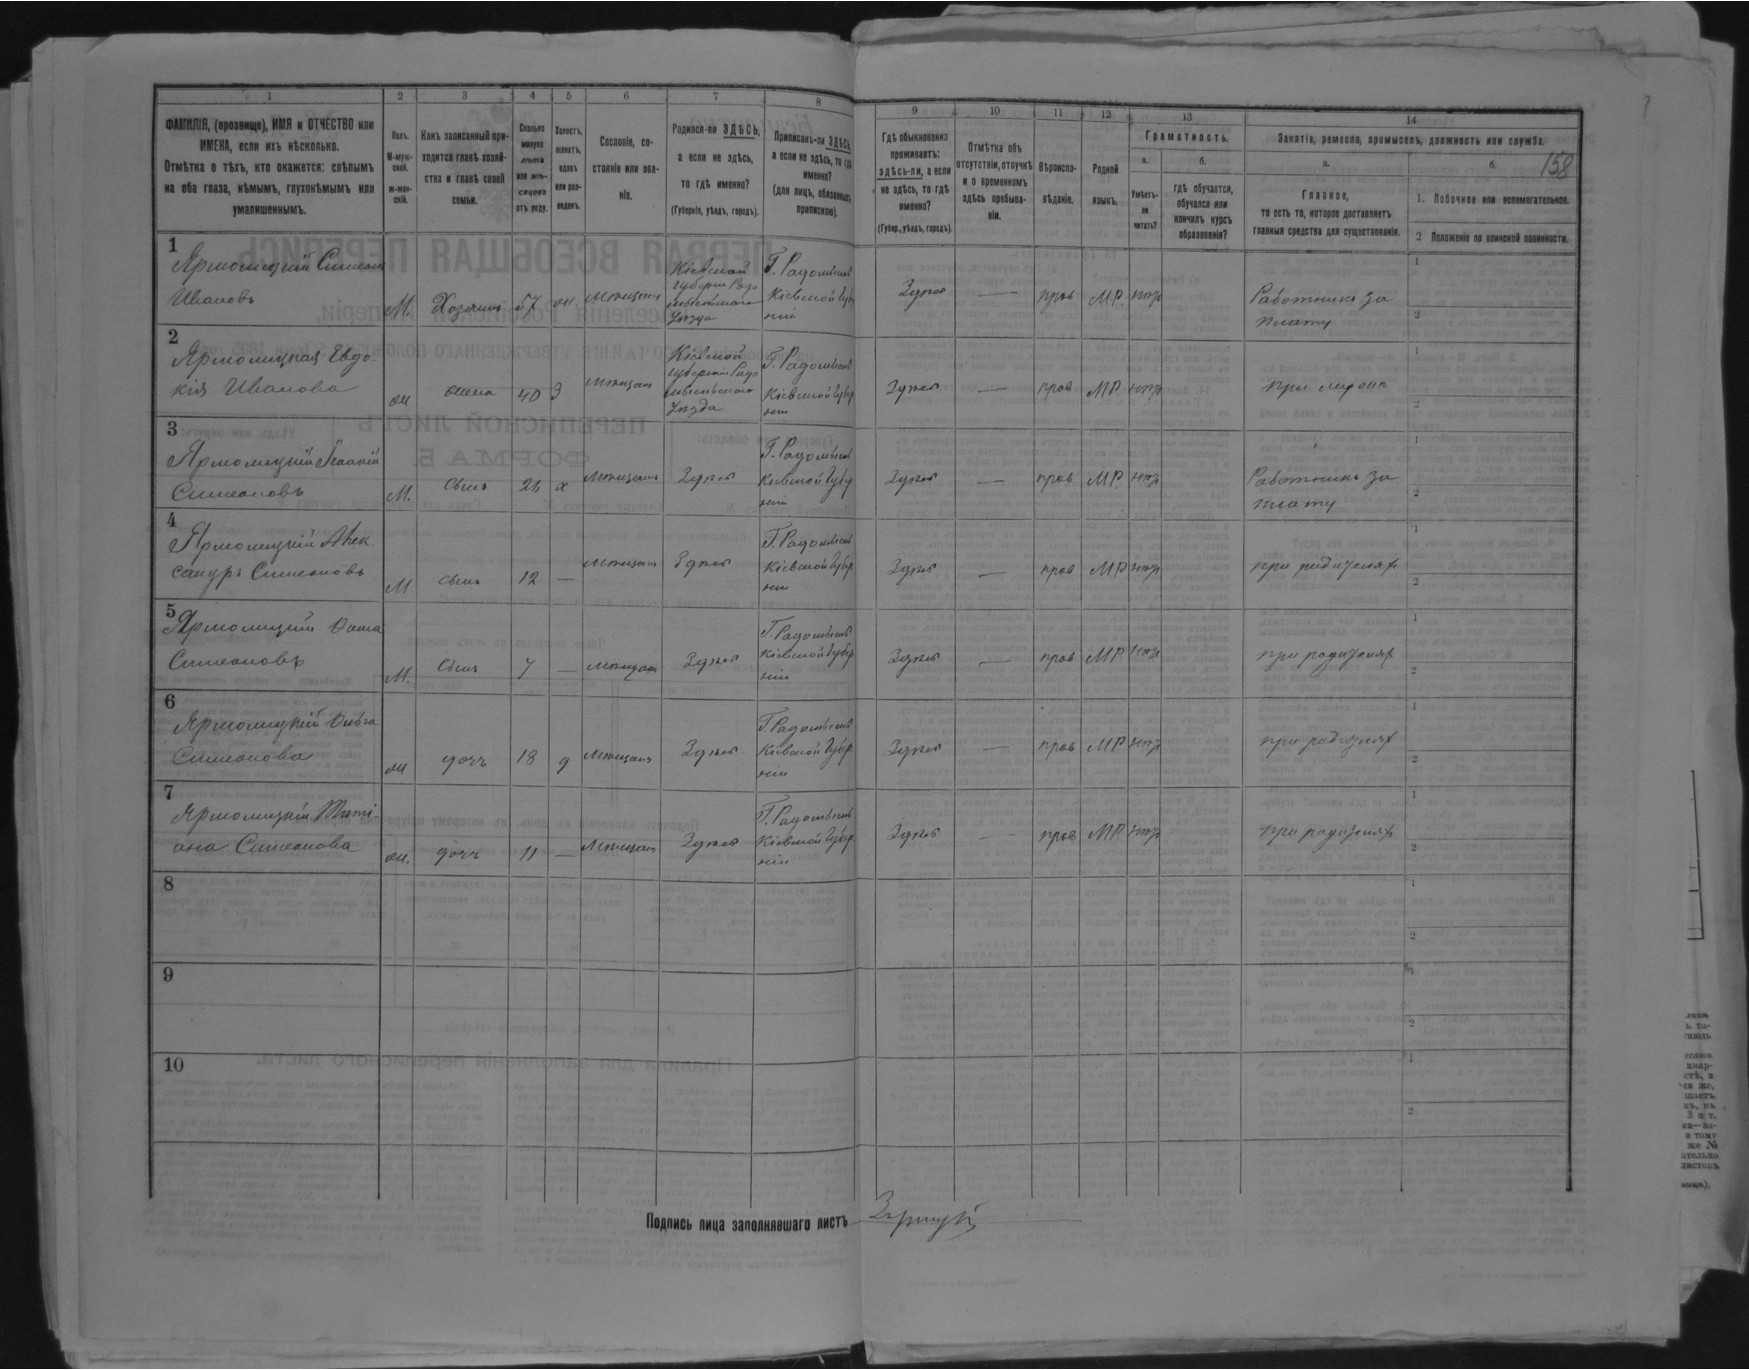 1
2
3
4
5
6
7
8
ФАМИЛІЯ, (прозвище), ИМЯ и ОТЧЕСТВО или
ИМЕНА, если ихъ нѣсколько.
Отмѣтка о тѣхъ, кто окажется: слѣпымъ
на оба глаза, нѣмымъ, глухонѣмымъ или
умалишеннымъ.
Полъ.
М-муж-
ской.
Ж-жен-
скій.
Какъ записанный при-
ходится главѣ хозяй-
ства и главѣ своей
семьи.
Сколько
минуло
лѣтъ
или мѣ-
сяцевъ
отъ роду.
Холостъ,
женатъ,
вдовъ
или раз-
веденъ.
Сословіе, со-
стояніе или зва-
ніе.
Родился-ли ЗДѢСЬ,
а если не здѣсь,
то гдѣ именно?
(Губернія, уѣздъ, городъ).
Приписанъ-ли ЗДѢСЬ,
а если не здѣсь, то гдѣ
именно?
(для лицъ, обязанныхъ
припискою).
9
10
11
12
13
14
Гдѣ обыкновенно
проживаетъ:
здѣсь-ли, а если
не здѣсь, то гдѣ
именно?
(Губер., уѣздъ, городъ).
Отмѣтка объ
отсутствіи, отлучкѣ
и о временномъ
здѣсь пребыва-
ніи.
Вѣроиспо-
вѣданіе.
Родной
языкъ.
Грамотность.
а.
Умѣетъ-
ли
читать?
б.
гдѣ обучается,
обучался или
кончилъ курсъ
образованія?
Занятіе, ремесло, промыселъ, должность или служба.
а.
Главное,
то есть то, которое доставляетъ
главныя средства для существованія.
б.
158
1. Побочное или вспомогательное.
2 Положеніе по воинской повинности.
1
Ярмолицкій Симеонъ
Ивановъ
М. Хозяинъ 57 ж. мѣщан
Кіевской
губерніи Радо
мысльскаго
Уѣзда
Г. Радомысль
Кіевской Губер
ніи
Здѣсь — прав МР нѣтъ
Работникъ за
плату
2
Ярмолицкая Евдо
кія Иванова
ж жена 40 З мѣщан
Кіевской
губерніи Радо
мысльскаго
Уѣзда
Г. Радомысль
Кіевской Губер
ніи
Здѣсь — прав МР нѣтъ
при
3
Ярмолицкій
Симеоновъ
М. Сынъ 26 х мѣщан Здѣсь
Г. Радомысль
Кіевской Губер
ніи
Здѣсь — прав МР. нѣтъ
Работникъ за
плату
4
Ярмолицкій Алек
сандръ Симеоновъ
М сынъ 12 — мѣщан Здѣсь
Г. Радомысль
Кіевской Губер
ніи
Здѣсь — прав МР нѣтъ
при родителях
5
Ярмолицкій
Симеоновъ
М. Сынъ 7 — мѣщан Здѣсь
Г. Радомысль
Кіевской Губер
ніи
Здѣсь — прав МР нѣтъ
при родителях
6
Ярмолицкій Ольга
Симеонова
ж дочь 18 д мѣщан Здѣсь
Г. Радомысль
Кіевской Губер
ніи
Здѣсь — прав МР нѣтъ
при родителях
7
Ярмолицкій Тати-
ана Симеонова
ж. дочь 11 — мѣщан Здѣсь
Г. Радомысль
Кіевской Губер
ніи
Здѣсь — прав МР. нѣтъ
при родителях
8
9
10
Подпись лица заполнявшаго листъ